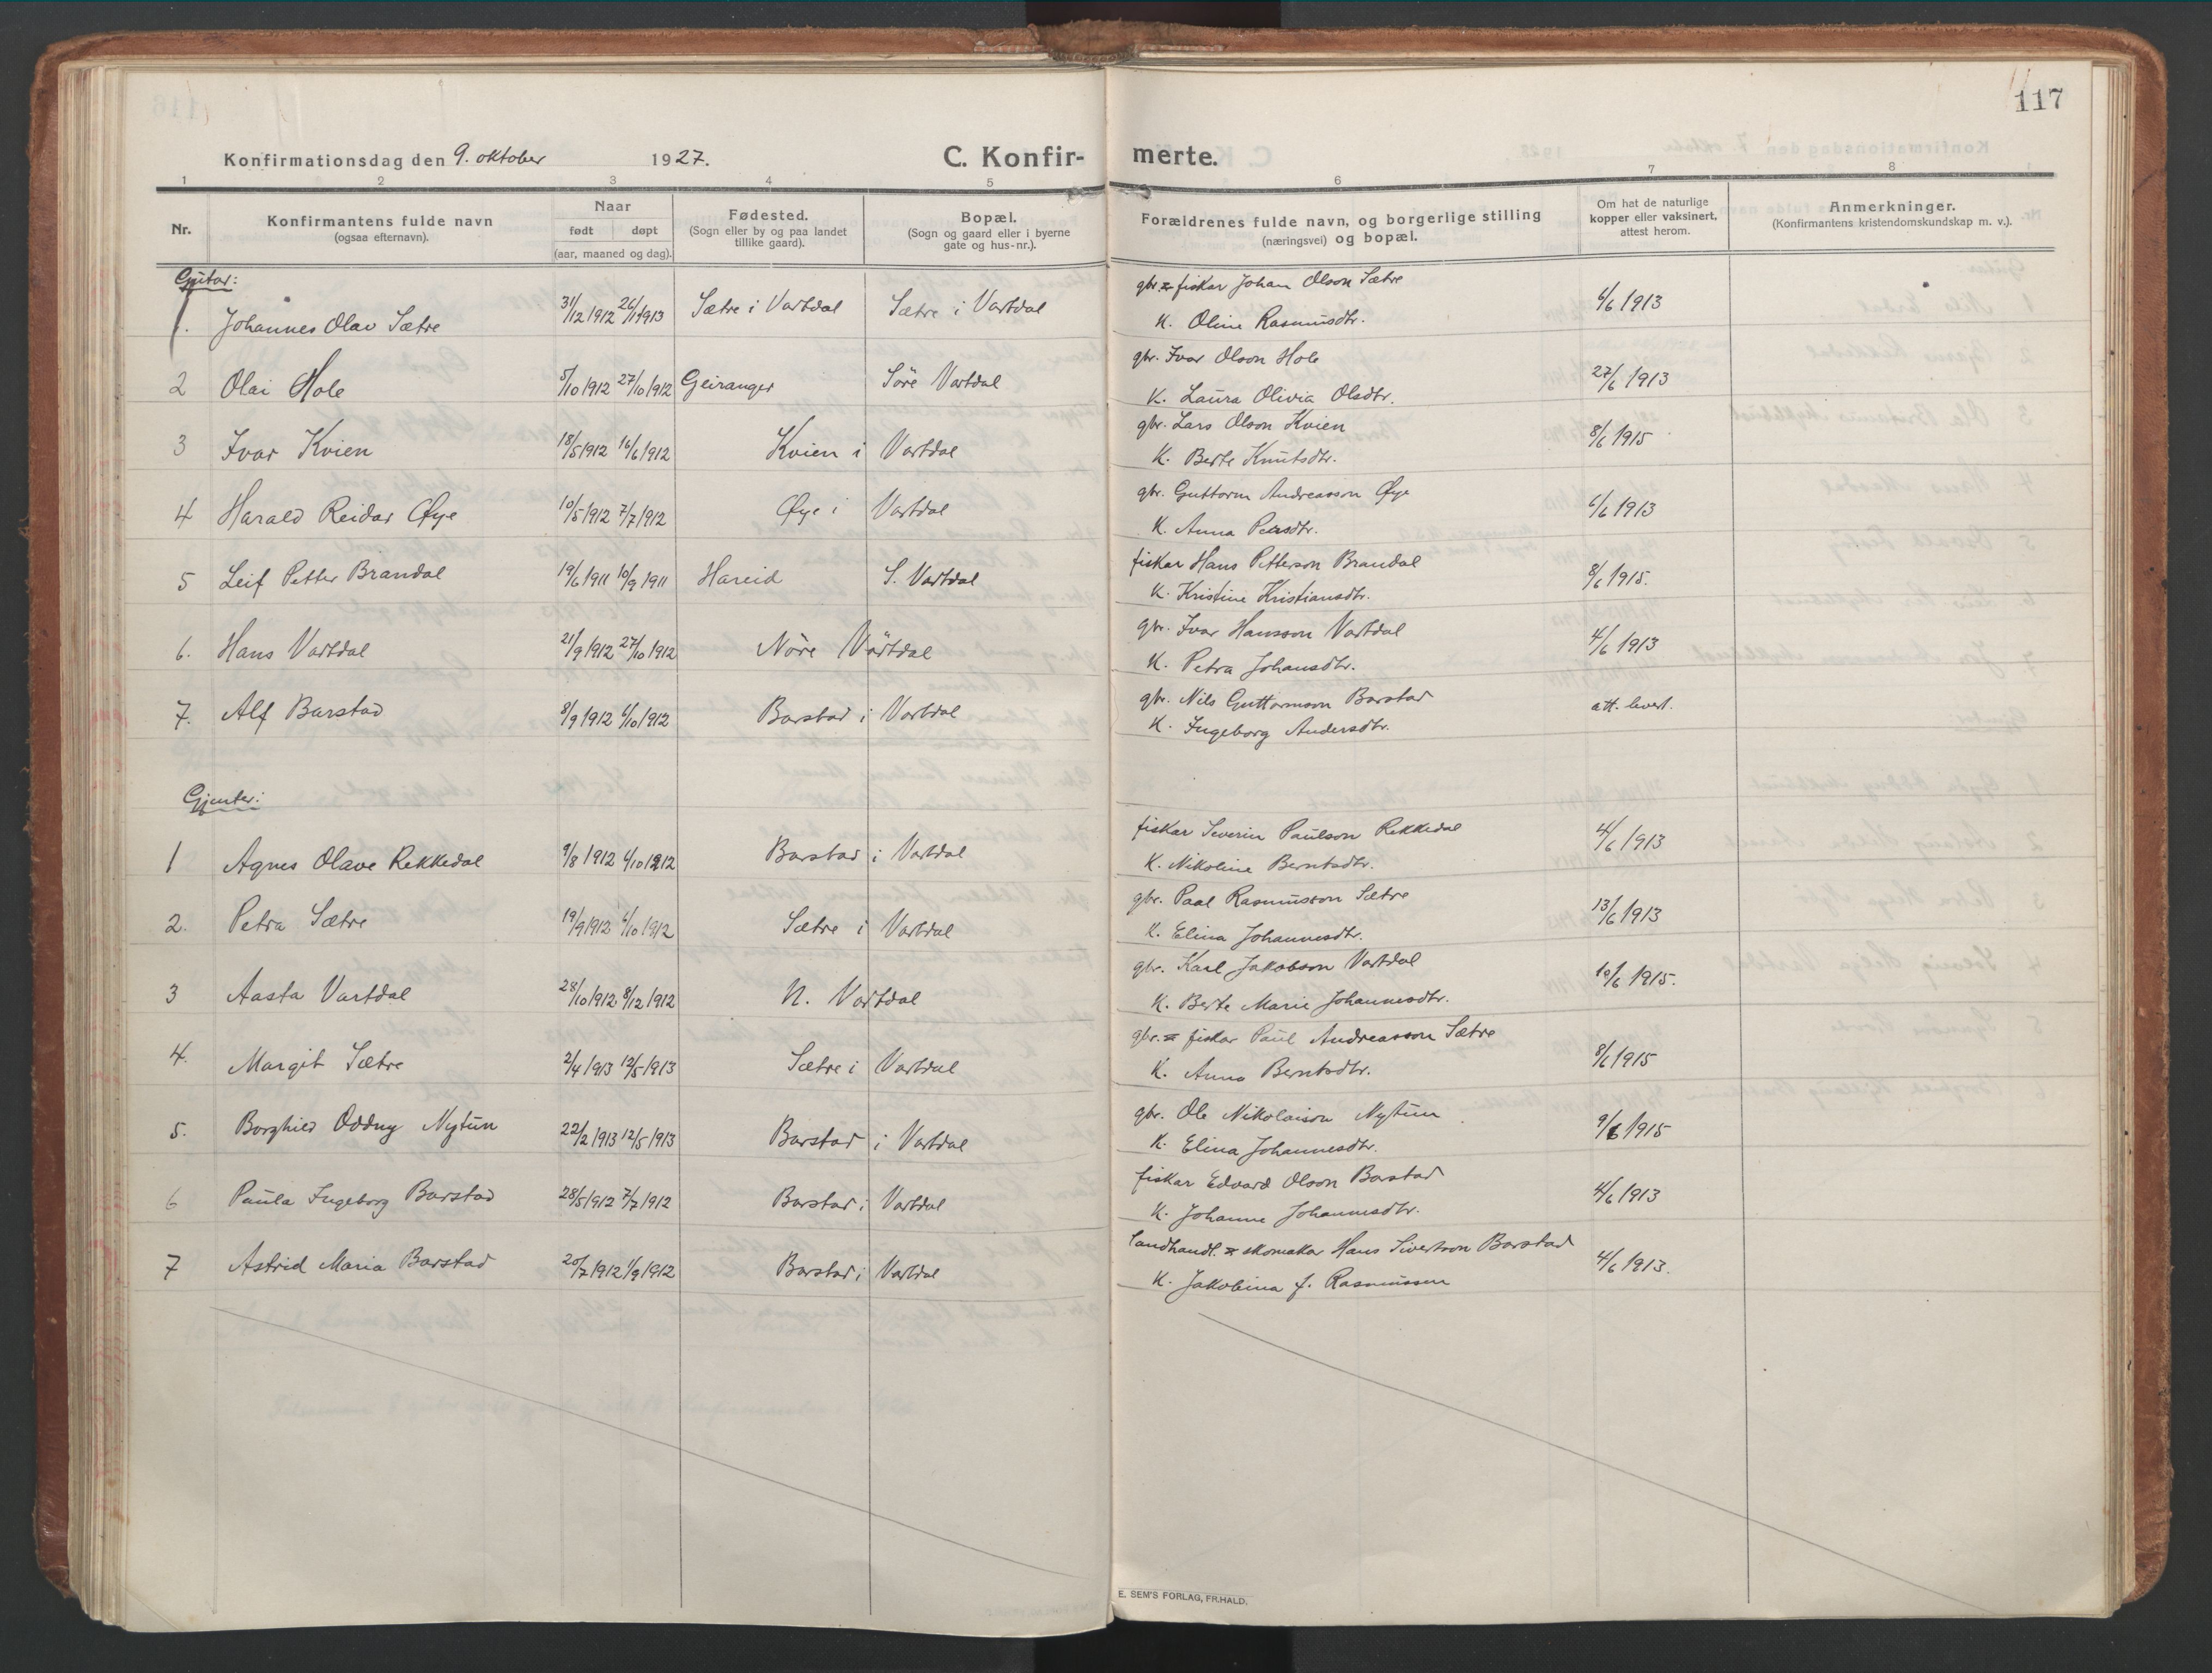 117
Konfirmationsdag den 9. oktober 1927. C. Konfirmerte.
1 2 3 4 5 6 7 8
Nr.
Konfirmantens fulde navn
(ogsaa efternavn).
Naar
født døpt
(aar, maaned og dag).
Fødested.
(Sogn eller by og paa landet
tillike gaard).
Bopæl.
(Sogn og gaard eller i byerne
gate og hus-nr.).
Forældrenes fulde navn, og borgerlige stilling
(næringsvei) og bopæl.
Om hat de naturlige
kopper eller vaksinert,
attest herom.
Anmerkninger.
(Konfirmantens kristendomskundskap m. v.).
Gutar:
1. Johannes Olav Sætre 31/12 1912 26/1 1913 Sætre i Vartdal Sætre i Vartdal gbr. & fiskar Johan Olson Sætre 6/6 1913
K. Oline Rasmusdtr.
2 Olai Hole 5/10 1912 27/10 1912 Geiranger Søre Vartdal gbr. Ivar Olson Hole 27/6 1913
K. Laura Olivia Olsdtr.
3 Ivar Kvien 18/5 1912 16/6 1912 Kvien i Vartdal gbr. Lars Olson Kvien 8/6 1915
K. Berte Knutsdtr.
4 Harald Reidar Øye 10/5 1912 7/7 1912 Øye i Vartdal gbr. Guttorm Andreasson Øye 6/6 1913
K. Anna Persdtr.
5 Leif Petter Brandal 19/6 1911 10/9 1911 Hareid S. Vartdal fiskar Hans Petterson Brandal 8/6 1915.
K. Kristine Kristiansdtr.
6. Hans Vartdal 21/9 1912 27/10 1912 Nøre Vartdal gbr. Ivar Hansson Vartdal 4/6 1913
K. Petra Johansdtr.
7. Alf Barstad 8/9 1912 6/10 1912 Barstad i Vartdal gbr. Nils Guttormson Barstad att. levert.
K. Ingeborg Andersdtr.
Gjenter:
1 Agnes Olave Rekkedal 9/8 1912 6/10 1912 Barstad i Vartdal fiskar Severin Paulson Rekkedal 4/6 1913
K. Nikoline Berntsdtr.
2. Petra Sætre 19/9 1912 6/10 1912 Sætre i Vartdal gbr. Paal Rasmusson Sætre 13/6 1913
K. Elina Johannesdtr.
3 Aasta Vartdal 28/10 1912 8/12 1912 N. Vartdal gbr. Karl Jakobson Vartdal 10/6 1915.
K. Berte Marie Johannesdtr.
4. Margit Sætre 2/4 1913 12/5 1913 Sætre i Vartdal gbr. & fiskar Paul Andreasson Sætre 8/6 1915
K. Anna Berntsdtr.
5. Borghild Oddny Nytun 22/2 1913 12/5 1913 Barstad i Vartdal gbr. Ole Nikolaison Nytun 9/6 1915
K. Elina Johannesdtr.
6 Paula Ingeborg Barstad 28/5 1912 7/7 1912 Barstad i Vartdal fiskar Edvard Olson Barstad 4/6 1913
K. Johanne Johannesdtr.
7 Astrid Maria Barstad 20/7 1912 1/9 1912 Barstad i Vartdal Landhandl. & skomakar Hans Sivertson Barstad 4/6 1913.
K. Jakobina f. Rasmussen
E. SEM'S FORLAG, FR.HALD.